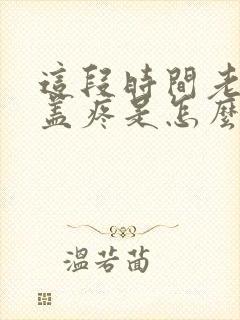 這段時間老
蓋疼是怎麼
溫若茵